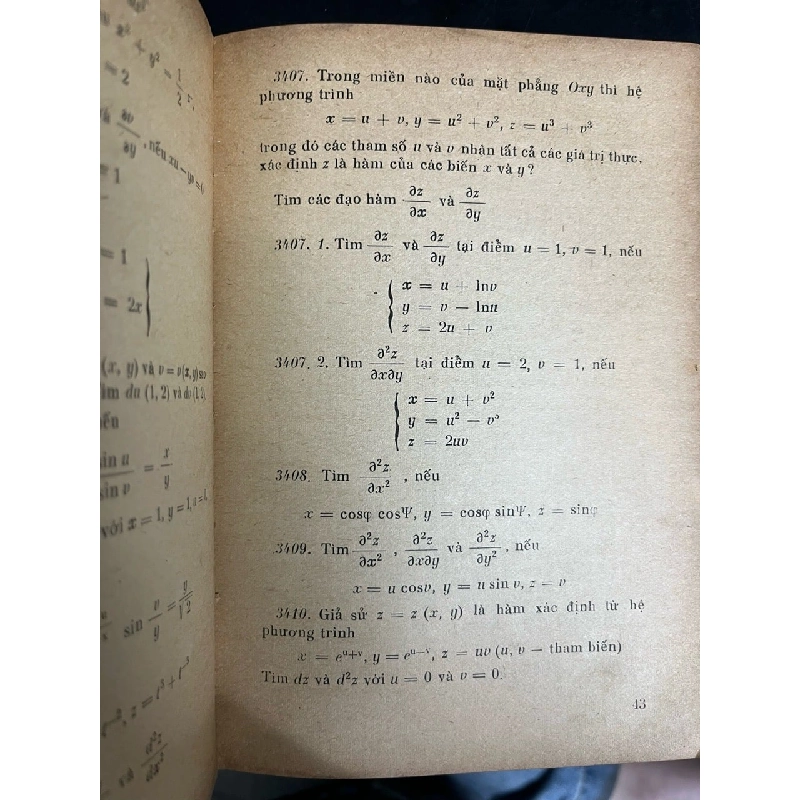 x² + y² = 1/2
= 2
∂v/∂y, nếu xu − yv = 0
= 1
= 1
= 2x
(x, y) và v = v(x, y)
du (1,2) và dv (1, 2)
sin u / sin v = x/y
với x = 1, y = 1,
sin v/y = v/√2
z = t³ + t⁻³
và d²z/dx²
3407. Trong miền nào của mặt phẳng Oxy thì hệ
phương trình
x = u + v, y = u² + v², z = u³ + v³
trong đó các tham số u và v nhận tất cả các giá trị thực,
xác định z là hàm của các biến x và y?
Tìm các đạo hàm ∂z/∂x và ∂z/∂y
3407. 1. Tìm ∂z/∂x và ∂z/∂y tại điểm u = 1, v = 1, nếu
x = u + lnv
y = v − lnu
z = 2u + v
3407. 2. Tìm ∂²z/∂x∂y tại điểm u = 2, v = 1, nếu
x = u + v²
y = u² − v³
z = 2uv
3408. Tìm ∂²z/∂x², nếu
x = cosφ cosΨ, y = cosφ sinΨ, z = sinφ
3409. Tìm ∂²z/∂x², ∂²z/∂x∂y và ∂²z/∂y², nếu
x = u cosv, y = u sin v, z = v
3410. Giả sử z = z (x, y) là hàm xác định từ hệ
phương trình
x = eᵘ⁺ᵛ, y = eᵘ⁻ᵛ, z = uv (u, v − tham biến)
Tìm dz và d²z với u = 0 và v = 0.
43